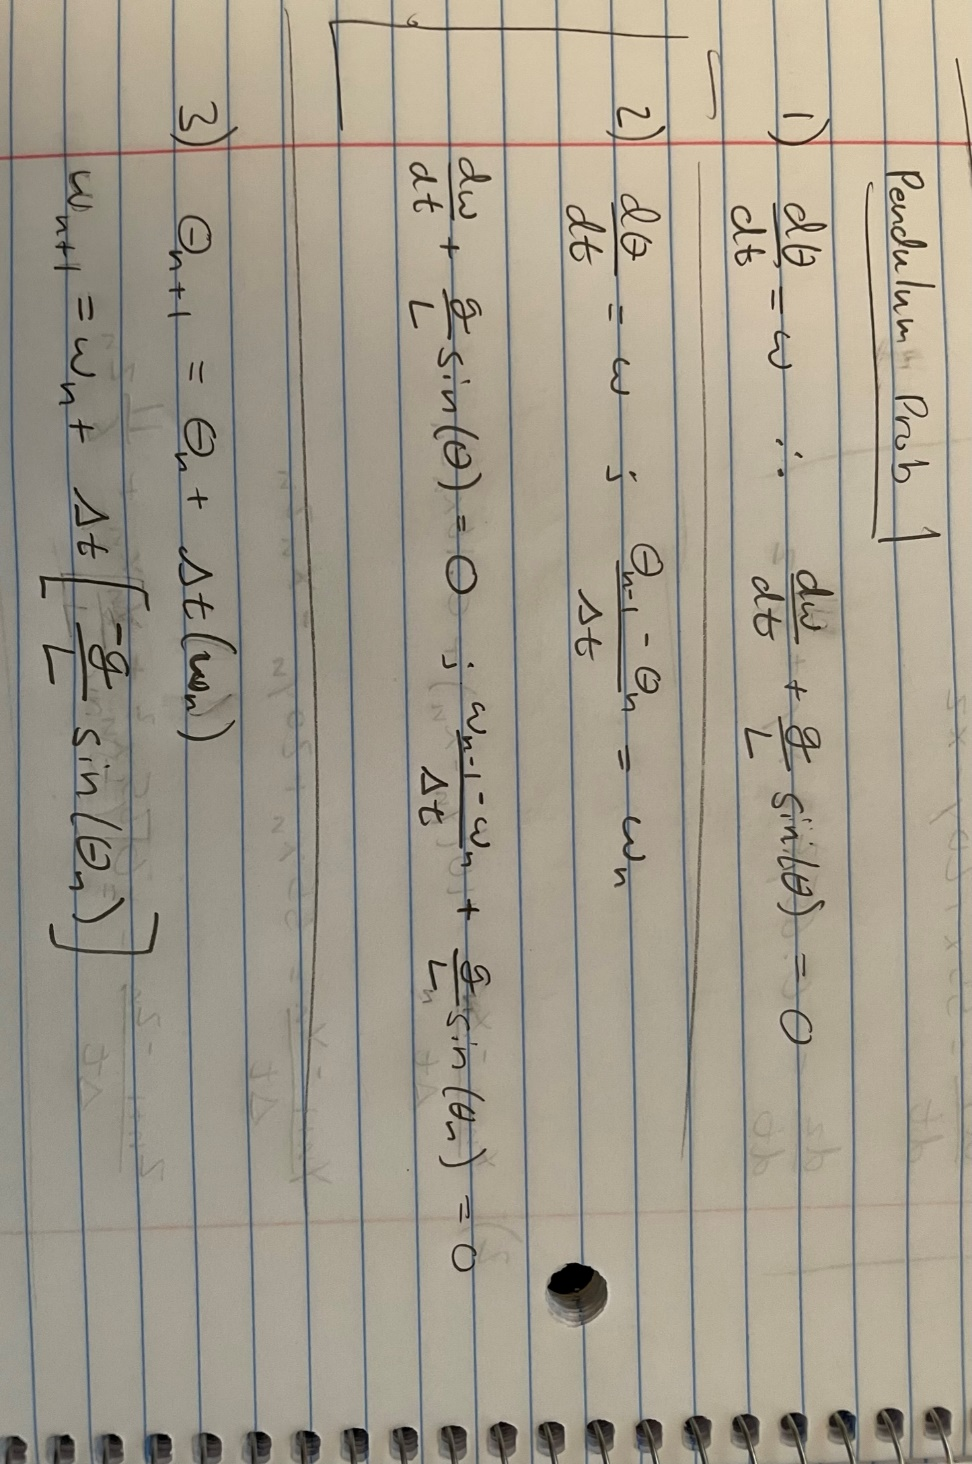 Pendulum Prob 1
1) dθ/dt = ω ∴ dω/dt + g/L sin(θ) = 0
2) dθ/dt = ω ; θn-1 - θn/Δt = ωn
dω/dt + g/L sin(θ) = 0 ; ωn-1 - ωn/Δt + g/L sin(θn) = 0
3) θn+1 = θn + Δt(ωn)
ωn+1 = ωn + Δt[-g/L sin(θn)]